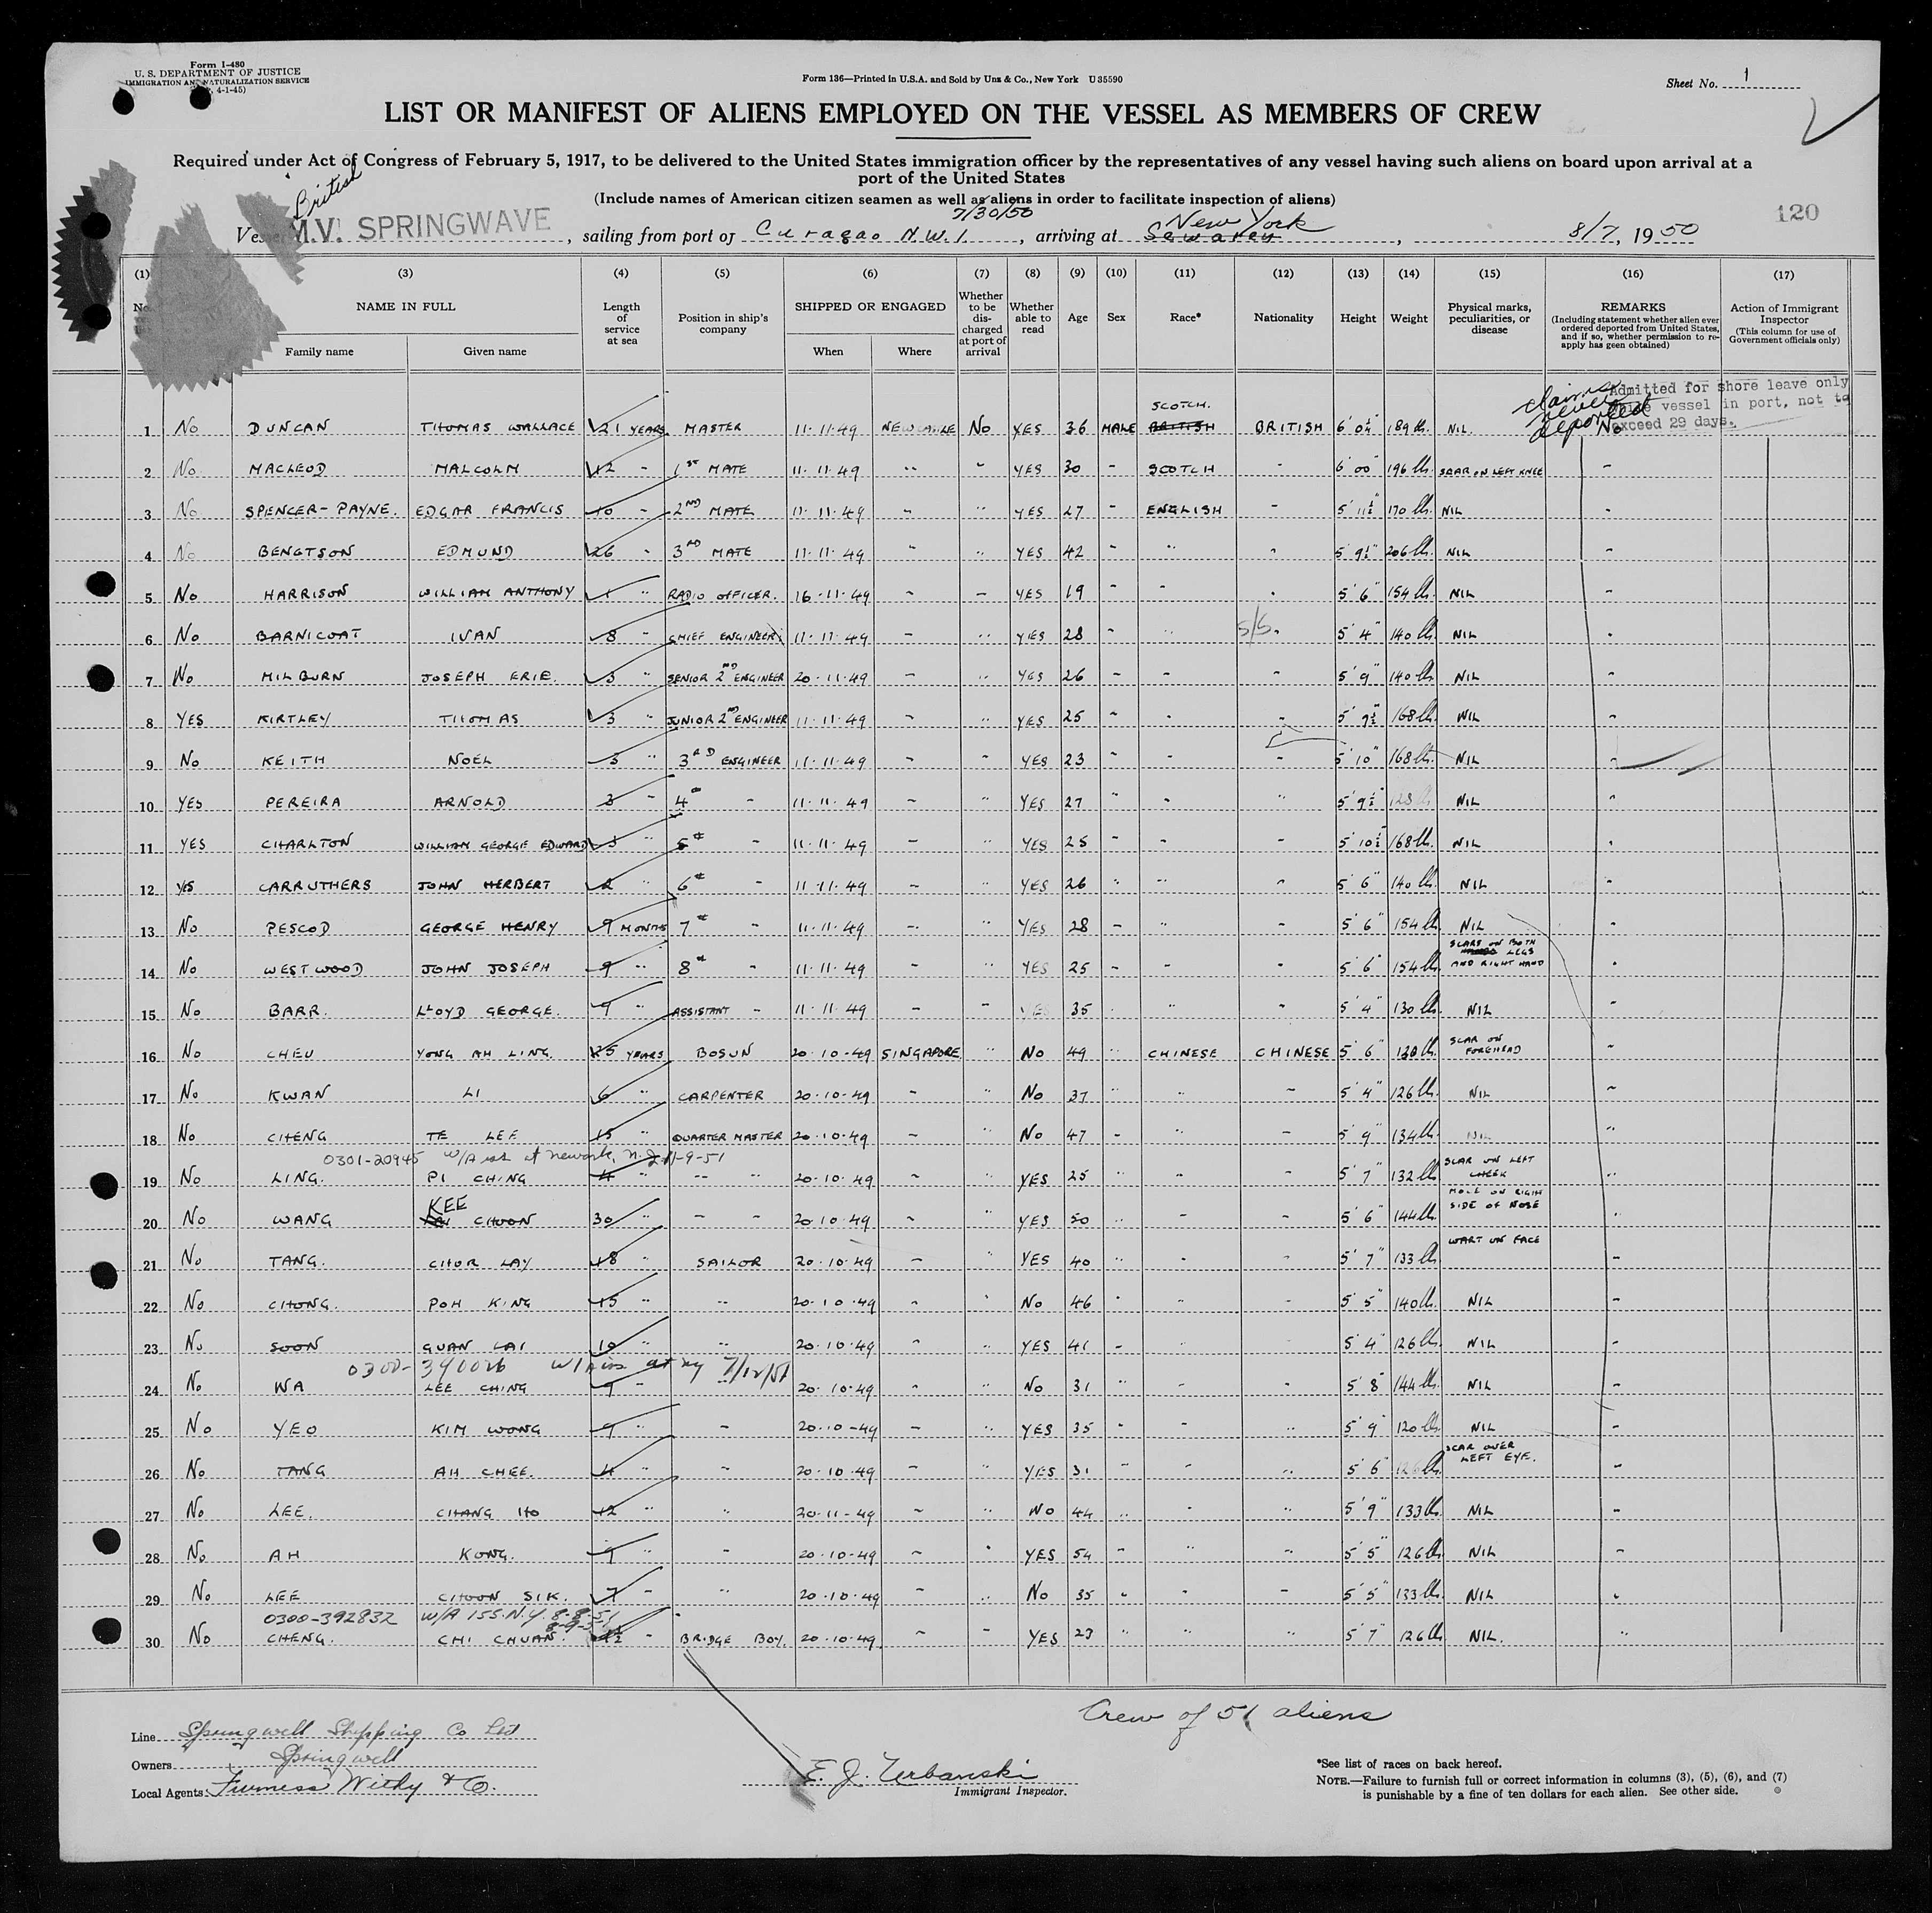 Form I-480
U. S. DEPARTMENT OF JUSTICE
IMMIGRATION AND NATURALIZATION SERVICE
4-1-45)
Form 136—Printed in U.S.A. and Sold by Unz & Co., New York U 35590
Sheet No. 1
LIST OR MANIFEST OF ALIENS EMPLOYED ON THE VESSEL AS MEMBERS OF CREW
Required under Act of Congress of February 5, 1917, to be delivered to the United States immigration officer by the representatives of any vessel having such aliens on board upon arrival at a
port of the United States
(Include names of American citizen seamen as well as aliens in order to facilitate inspection of aliens)
British 7/30/50 New York 120
M.V. SPRINGWAVE, sailing from port of Curaçao N.W.I., arriving at Sewaren, 8/7, 1950
(1) (3) (4) (5) (6) (7) (8) (9) (10) (11) (12) (13) (14) (15) (16) (17)
NAME IN FULL Family name Given name Length of service at sea Position in ship's company SHIPPED OR ENGAGED When Where Whether to be discharged at port of arrival Whether able to read Age Sex Race* Nationality Height Weight Physical marks, peculiarities, or disease REMARKS (Including statement whether alien ever ordered deported from United States, and if so, whether permission to re-apply has geen obtained) Action of Immigrant Inspector (This column for use of Government officials only)
claims never deported
Admitted for shore leave only
vessel in port, not to
exceed 29 days.
SCOTCH.
1 No DUNCAN THOMAS WALLACE 21 YEARS MASTER 11·11·49 NEWCASTLE No YES 36 MALE BRITISH BRITISH 6' 0½" 189 lb. NIL. No
2 No MACLEOD MALCOLM 12 " 1ST MATE 11·11·49 " " YES 30 " SCOTCH " 6' 00" 196 lb. SCAR ON LEFT KNEE "
3 No SPENCER-PAYNE. EDGAR FRANCIS 10 " 2ND MATE 11·11·49 " " YES 27 " ENGLISH " 5' 11½" 170 lb. NIL "
4 No BENGTSON EDMUND 26 " 3RD MATE 11·11·49 " " YES 42 " " " 5' 9½" 206 lb. NIL "
5 No HARRISON WILLIAM ANTHONY 1 " RADIO OFFICER. 16·11·49 " " YES 19 " " " 5' 6" 154 lb. NIL "
6 No BARNICOAT IVAN 8 " CHIEF ENGINEER 11·11·49 " " YES 28 " " " 5' 4" 140 lb. NIL "
7 No MILBURN JOSEPH ERIE. 3 " SENIOR 2ND ENGINEER 20·11·49 " " YES 26 " " " 5' 9" 140 lb. NIL "
8 YES KIRTLEY THOMAS 3 " JUNIOR 2ND ENGINEER 11·11·49 " " YES 25 " " " 5' 9½" 168 lb. NIL "
9 No KEITH NOEL 3 " 3RD ENGINEER 11·11·49 " " YES 23 " " " 5' 10" 168 lb. NIL "
10 YES PEREIRA ARNOLD 3 " 4th " 11·11·49 " " YES 27 " " " 5' 9½" NIL "
11 YES CHARLTON WILLIAM GEORGE EDWARD 3 " 5th " 11·11·49 " " YES 25 " " " 5' 10½" 168 lb. NIL "
12 YES CARRUTHERS JOHN HERBERT 2 " 6th " 11·11·49 " " YES 26 " " " 5' 6" 140 lb. NIL "
13 No PESCOD GEORGE HENRY 9 MONTHS 7th " 11·11·49 " " YES 28 " " " 5' 6" 154 lb. NIL
14 No WESTWOOD JOHN JOSEPH 9 " 8th " 11·11·49 " " YES 25 " " " 5' 6" 154 lb. SCARS ON BOTH LEGS AND RIGHT HAND "
15 No BARR. LLOYD GEORGE. 9 " ASSISTANT " 11·11·49 " " YES 35 " " " 5' 4" 130 lb. NIL "
16 No CHEU YONG AH LING. 25 YEARS BOSUN 20·10·49 SINGAPORE " No 49 " CHINESE CHINESE 5' 6" 120 lb. SCAR ON FOREHEAD "
17 No KWAN LI 6 " CARPENTER 20·10·49 " " No 37 " " " 5' 4" 126 lb. NIL "
18 No CHENG TE LEE 15 " QUARTER MASTER 20·10·49 " " No 47 " " " 5' 9" 134 lb. NIL "
0301-20945 W/A iss at newark, N.J. 11-9-51
19 No LING. PI CHING 4 " " " 20·10·49 " " YES 25 " " " 5' 7" 132 lb SCAR ON LEFT CHEEK "
KEE
20 No WANG CHOON 30 " " " 20·10·49 " " YES 50 " " " 5' 6" 144 lb. MOLE ON RIGH SIDE OF NOSE "
21 No TANG. CHOR LAY 18 " SAILOR 20·10·49 " " YES 40 " " " 5' 7" 133 lb WART ON FACE "
22 No CHONG. POH KING 15 " " 20·10·49 " " No 46 " " " 5' 5" 140 lb. NIL "
23 No SOON GUAN LAI 10 " " 20·10·49 " " YES 41 " " " 5' 4" 126 lb. NIL "
0300-390026 W/A iss at ny 7/12/51
24 No WA LEE CHING 9 " 20·10·49 " " No 31 " " " 5' 8" 144 lb. NIL "
25 No YEO KIM WONG 9 " " 20·10·49 " " YES 35 " " " 5' 9" 120 lb NIL "
26 No TANG AH CHEE. 4 " " 20·10·49 " " YES 31 " " " 5' 6" 126 lb. SCAR OVER LEFT EYE. "
27 No LEE. CHANG HO 12 " " 20·11·49 " " No 44 " " " 5' 9" 133 lb. NIL "
28 No AH KONG. 9 " " 20·10·49 " " YES 54 " " " 5' 5" 126 lb. NIL "
29 No LEE CHOON SIK. 7 " " 20·10·49 " " No 35 " " " 5' 5" 133 lb. NIL "
0300-392832 W/A ISS. N.Y. 8-8-51
8-9-51
30 No CHENG. CHI CHUAN. " BRIDGE BOY. 20·10·49 " " YES 23 " " " 5' 7" 126 lb NIL. "
Crew of 51 aliens
Line Springwell Shipping Co Ltd
Owners Springwell
Local Agents: Furness Withy & Co.
E. J. Urbanski
Immigrant Inspector.
*See list of races on back hereof.
NOTE.—Failure to furnish full or correct information in columns (3), (5), (6), and (7)
is punishable by a fine of ten dollars for each alien. See other side.